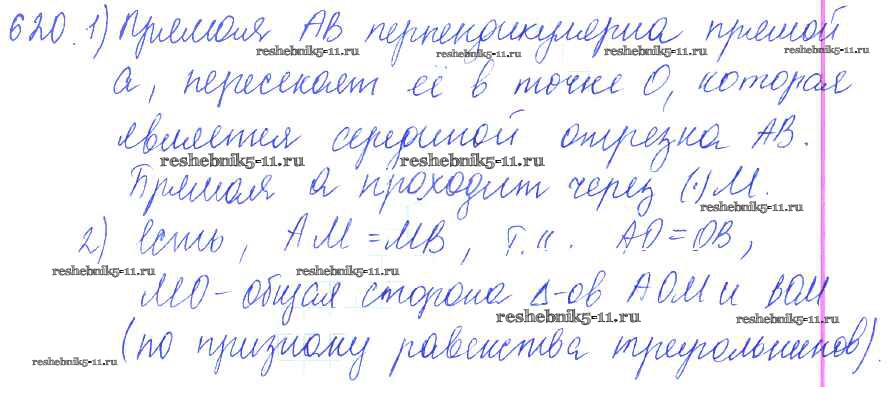 620. 1) Прямая AB перпендикулярна прямой
reshebnik5-11.ru reshebnik5-11.ru reshebnik5-11.ru
a, пересекает её в точке O, которая
является серединой отрезка AB.
reshebnik5-11.ru reshebnik5-11.ru
Прямая a проходит через (·) M.
reshebnik5-11.ru
2) Есть, AM = MB, т.к. AO = OB,
reshebnik5-11.ru reshebnik5-11.ru reshebnik5-11.ru
MO - общая сторона Δ-ов AOM и BOM
reshebnik5-11.ru reshebnik5-11.ru
(по признаку равенства треугольников).
reshebnik5-11.ru reshebnik5-11.ru reshebnik5-11.ru